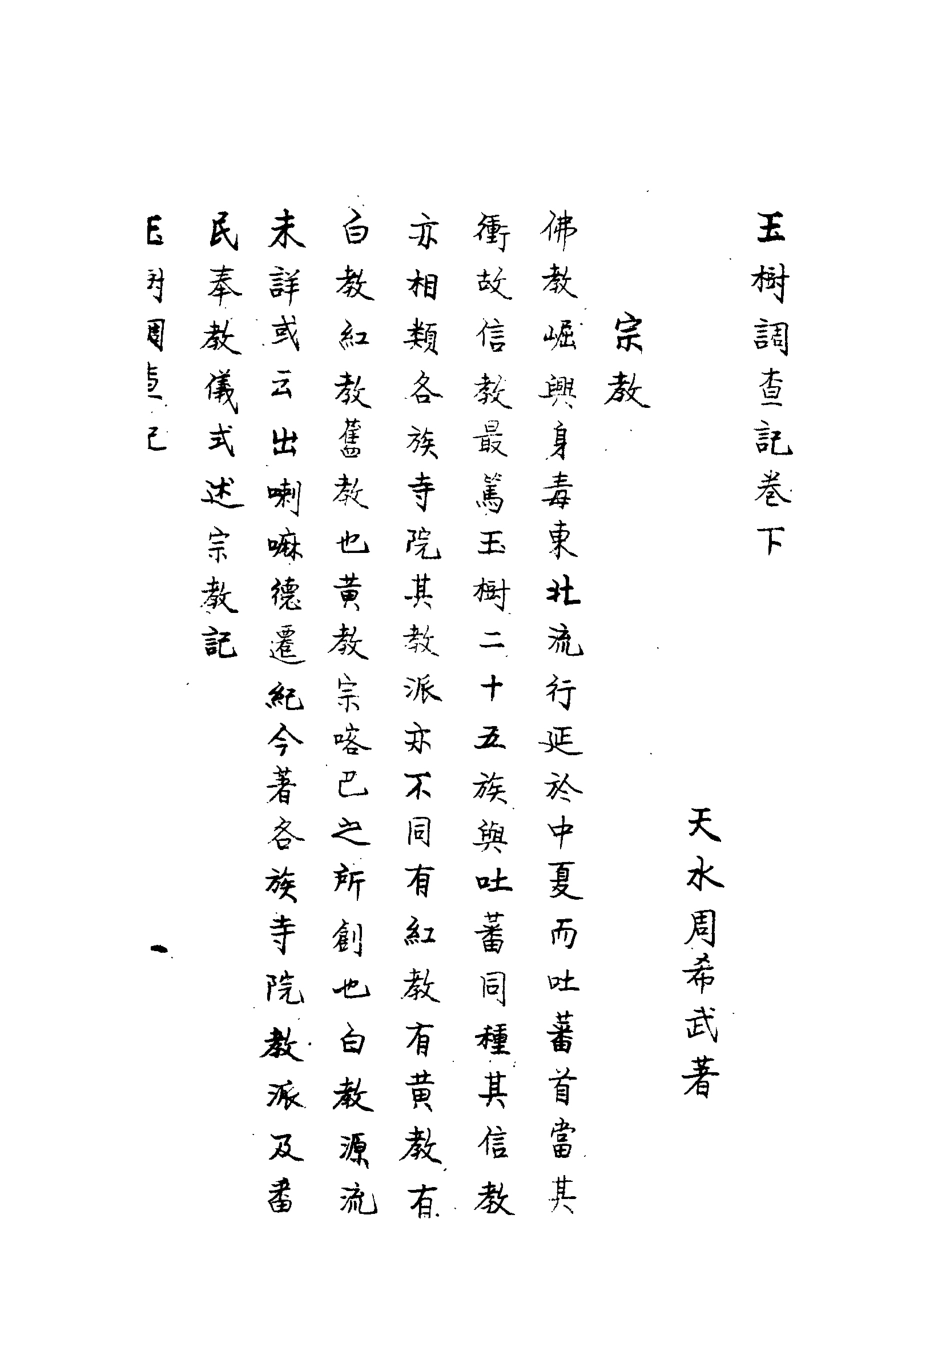 玉樹調查記卷下
天水周希武著
宗教
佛教崛興身毒東北流行延於中夏而吐蕃首當其
衝故信教最篤玉樹二十五族與吐蕃同種其信教
亦相類各族寺院其教派亦不同有紅教有黃教有
白教紅教舊教也黃教宗喀巴之所創也白教源流
未詳或云出喇嘛德遷紀今著各族寺院教派及番
民奉教儀式述宗教記
玉樹調查記
一